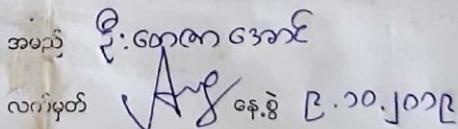 အမည် ဦးတေဇာအောင်
လက်မှတ် နေ့စွဲ ၉.၁၀.၂၀၁၉